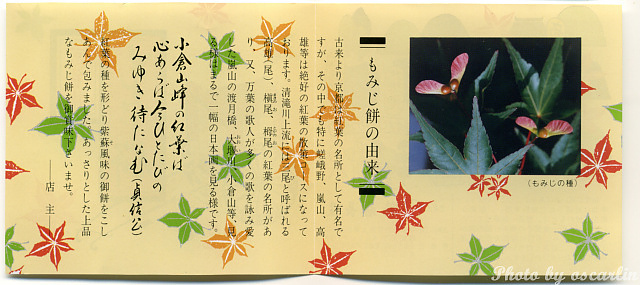 もみじ餅の由来
古来より京都は紅葉の名所として有名で
すが、その中でも特に嵯峨野、嵐山、高
雄等は絶好の紅葉の散策コースになって
おります。清滝川上流には三尾と呼ばれる
高雄(尾)、槇尾、栂尾の紅葉の名所があ
り、又、万葉の歌人が多くの歌を詠み愛
した嵐山の渡月橋、大堰川、小倉山等、見
る様はまるで一幅の日本画を見る様です。
小倉山峰の紅葉ば
心あらば今ひとたびの
みゆき待たなむ 貞信公
紅葉の種を形どり紫蘇風味の御餅をこし
あんで包みました。あっさりとした上品
なもみじ餅を御賞味下さいませ。
店主
(もみじの種)
Photo by oscarlin